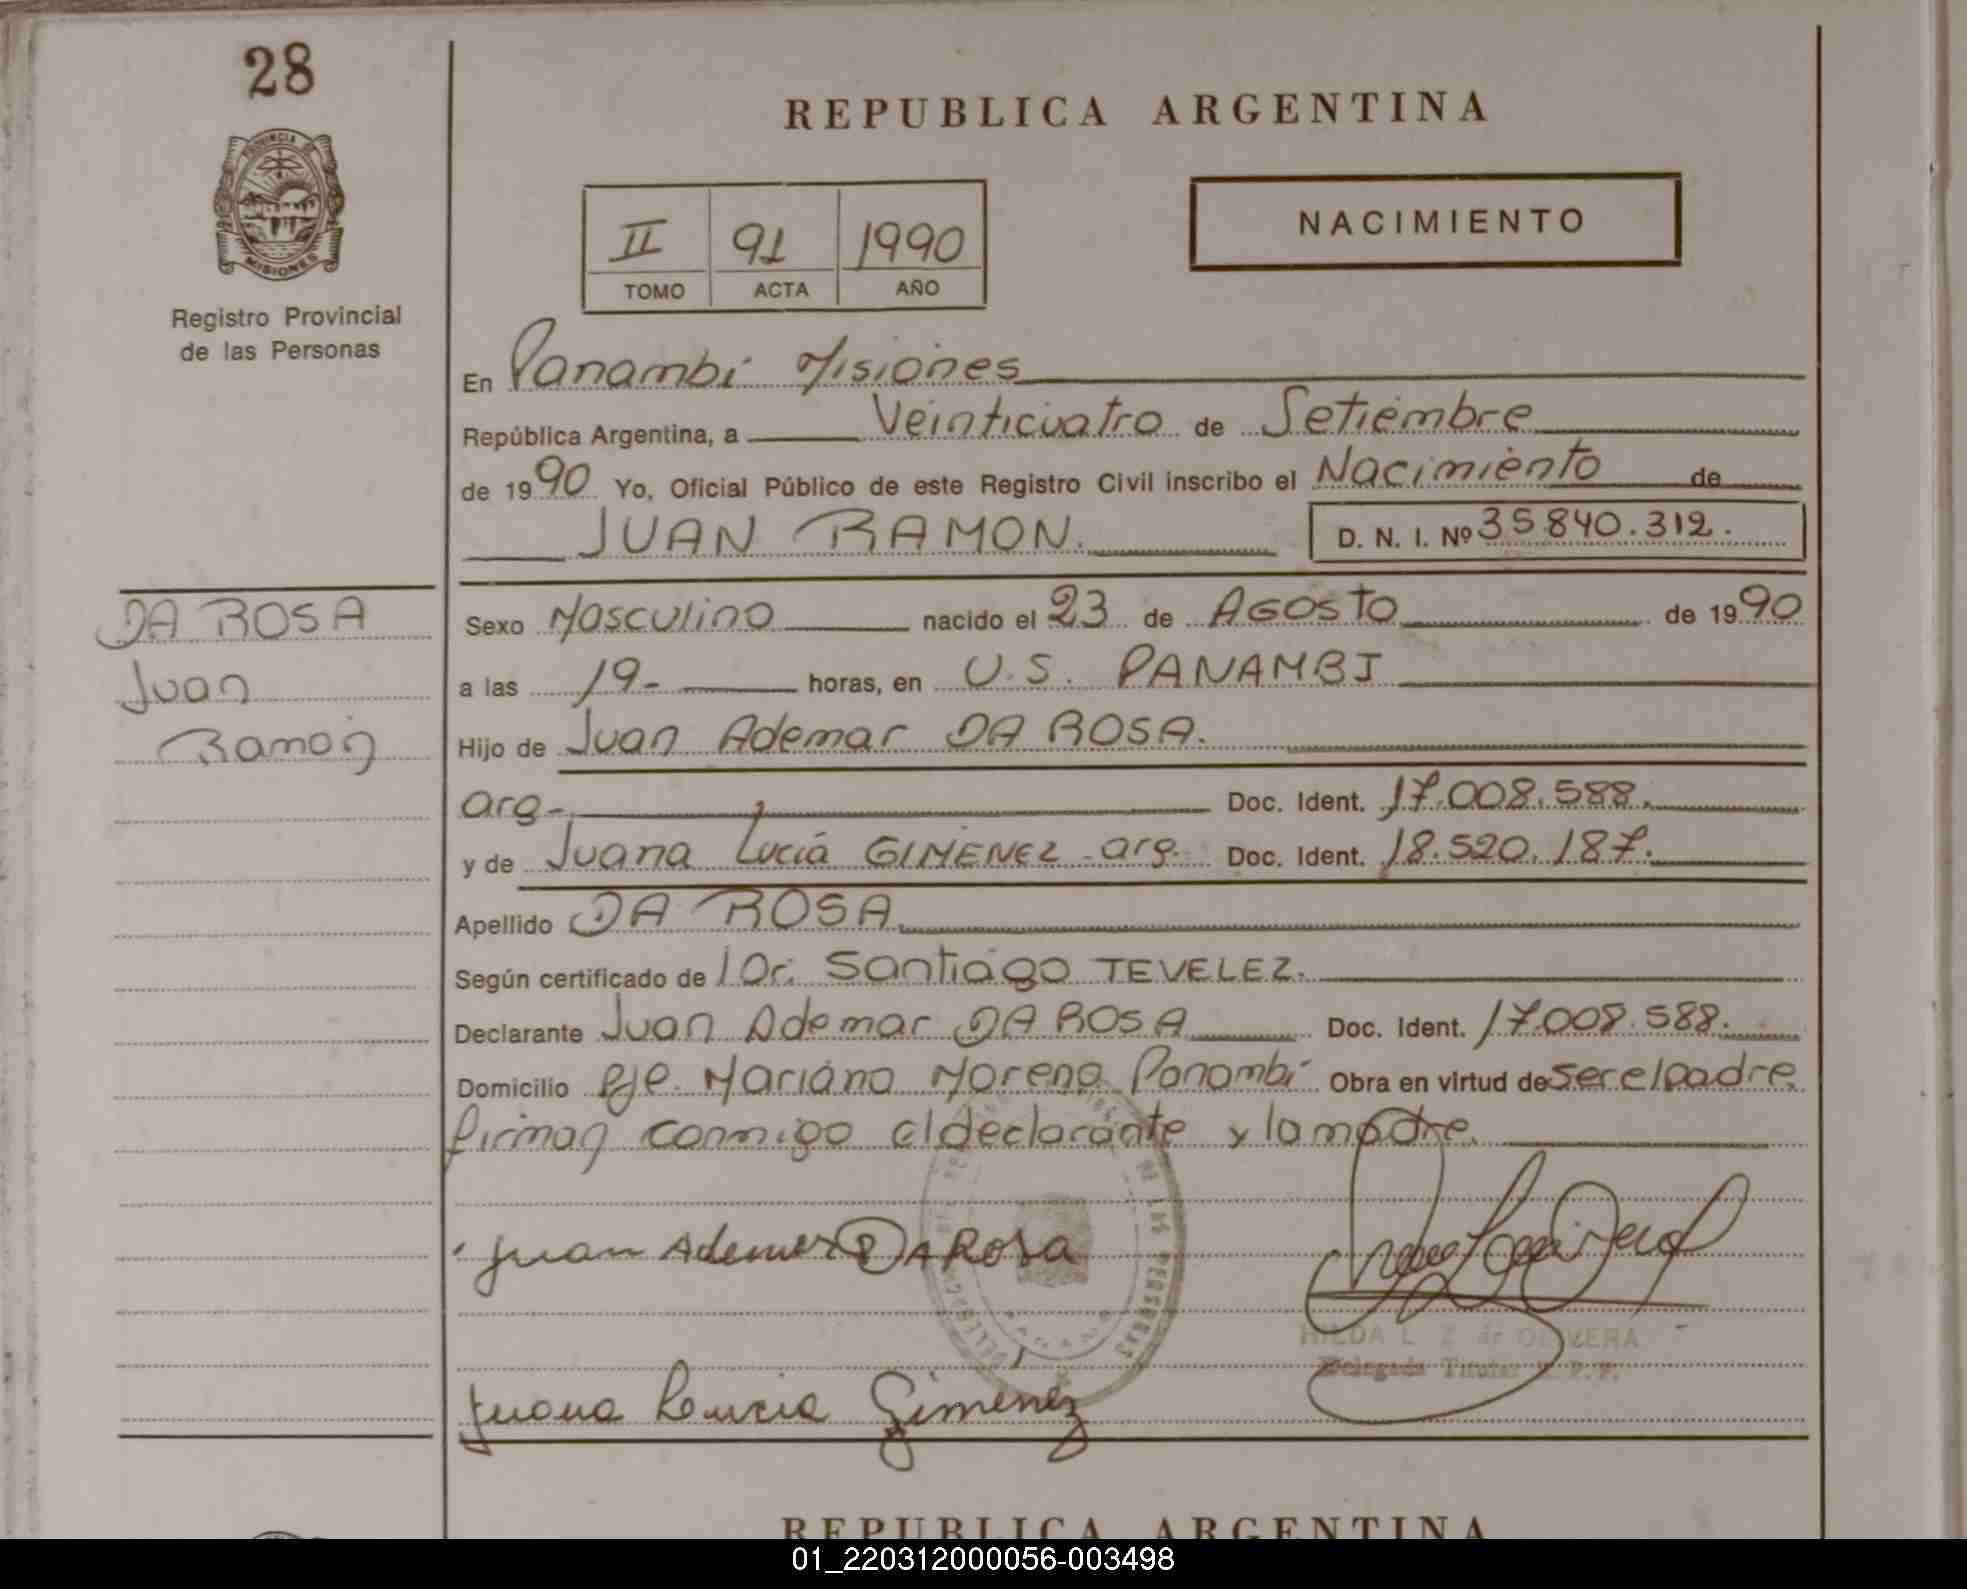 28
REPUBLICA ARGENTINA
PROVINCIA DE
MISIONES
Registro Provincial
de las Personas
II 91 1990
TOMO ACTA AÑO
NACIMIENTO
En Panambí Misiones
República Argentina, a Veinticuatro de Setiembre
de 1990 Yo, Oficial Público de este Registro Civil inscribo el Nacimiento de
JUAN RAMON. D. N. I. Nº 35.840.312.
DA ROSA
Juan
Ramón
Sexo Masculino nacido el 23 de AGOSTO de 1990
a las 19- horas, en U.S. PANAMBI
Hijo de Juan Ademar DA ROSA.
arg- Doc. Ident. 17.008.588.
y de Juana Lucía GIMENEZ - arg. Doc. Ident. 18.520.187.
Apellido DA ROSA
Según certificado de Dr. Santiago TEVELEZ.
Declarante Juan Ademar DA ROSA Doc. Ident. 17.008.588.
Domicilio Pje. Mariano Moreno Panambí Obra en virtud de ser el padre
firman conmigo el declarante y la madre.
Juan Ademar DA ROSA
HILDA L Z de OLIVERA
Delegada Titular R. P. P.
Juana Lucia Gimenez
REPUBLICA ARGENTINA
01_220312000056-003498